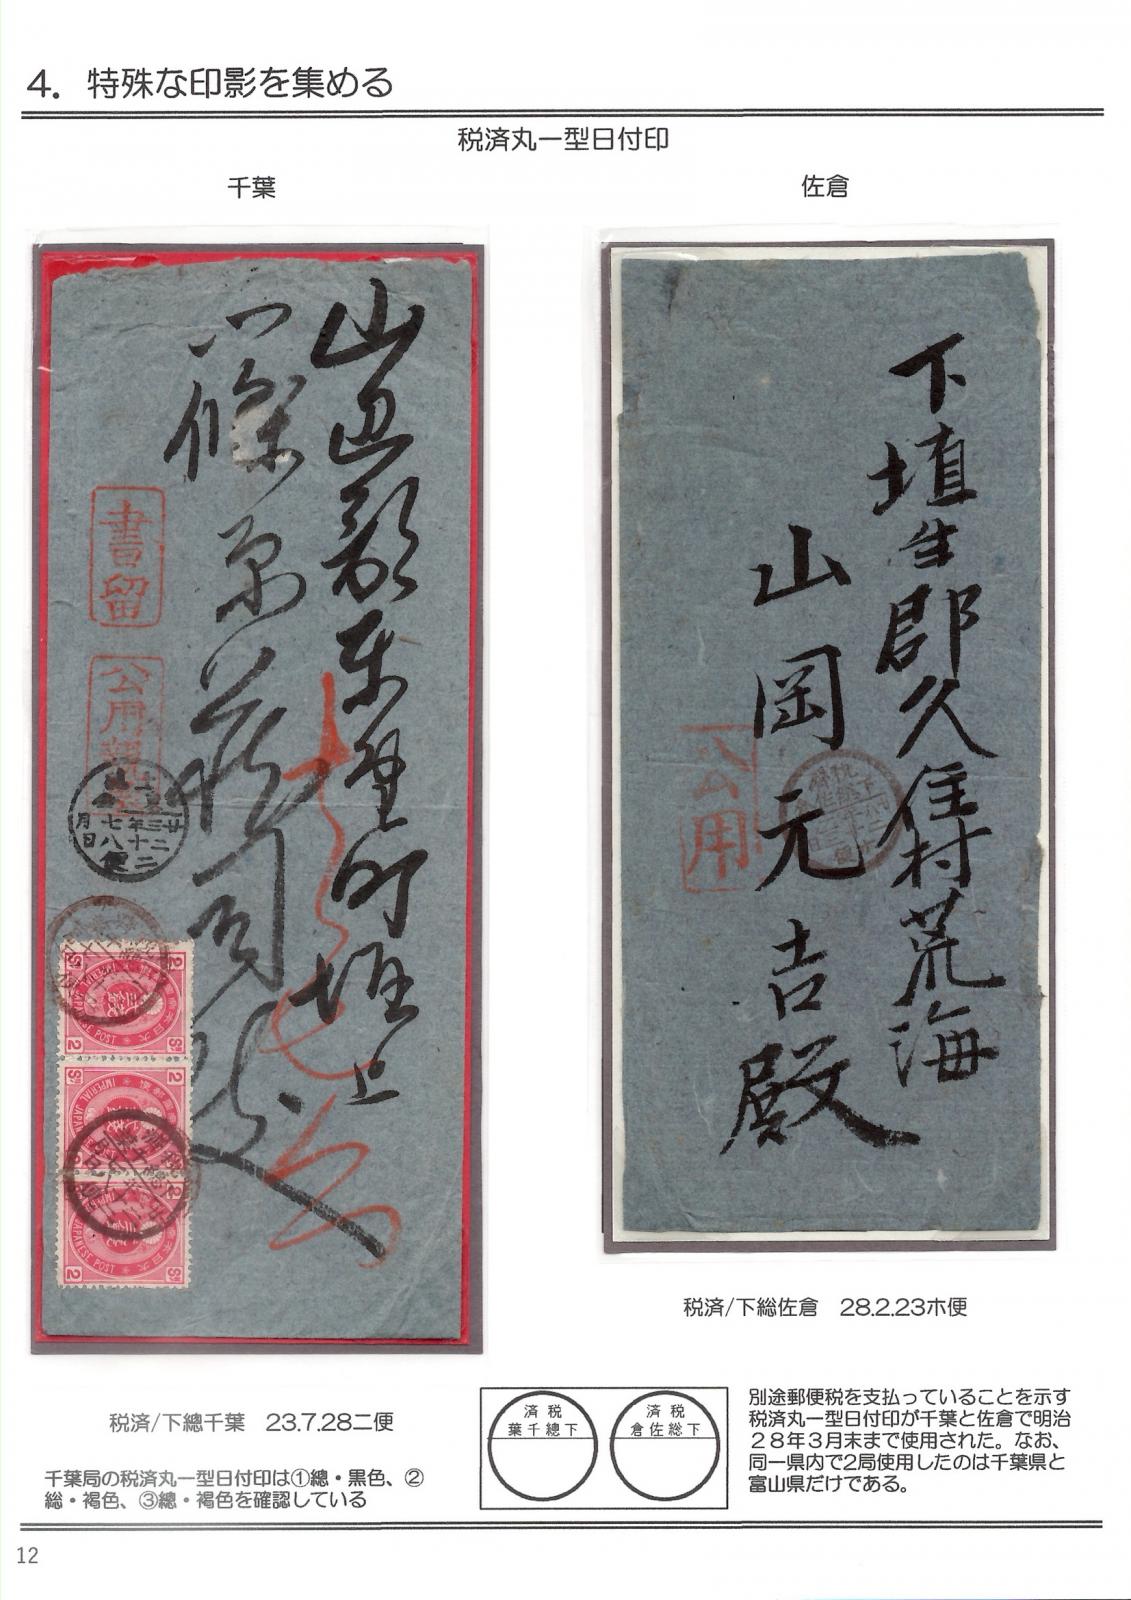 4．特殊な印影を集める
税済丸一型日付印
千葉
佐倉
山辺郡東金町堀上
篠原蔵司殿
書留
公用
廿三年
七月
二十八日
二便
2
Sn
IMPERIAL JAPANESE POST
2
Sn
IMPERIAL JAPANESE POST
2
Sn
IMPERIAL JAPANESE POST
下埴生郡久住村荒海
山岡元吉殿
公用
税済/下総佐倉　28.2.23ホ便
税済/下總千葉　23.7.28二便
千葉局の税済丸一型日付印は①總・黒色、②
総・褐色、③總・褐色を確認している
済税
葉千總下
済税
倉佐総下
別途郵便税を支払っていることを示す
税済丸一型日付印が千葉と佐倉で明治
２８年３月末まで使用された。なお、
同一県内で２局使用したのは千葉県と
富山県だけである。
12